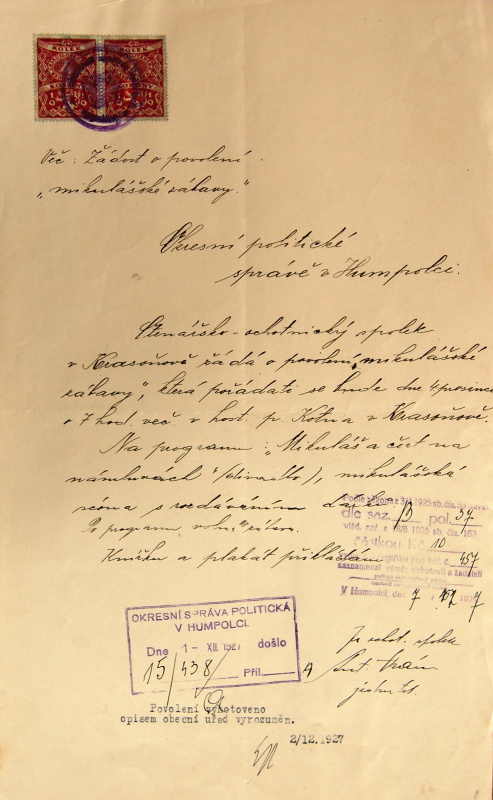 KOLEK KOLEK
Věc: Žádost o povolení
„mikulášské zábavy."
Okresní politické
správě v Humpolci.
Čtenářsko-ochotnický spolek
v Krasoňově žádá o povolení „mikulášské
zábavy", která pořádati se bude dne 4 prosince
o 7 hod. več. v host. p. Kotna v Krasoňově.
Na programu: „Mikuláš a čert na
námluvách" (divadlo), mikulášská
scéna s rozdáváním
Po programu volná zábava.
Knížku a plakát přikládám
Podle zákona z 3/II 1925 sb. čís.
dle saz. pol. 37
vlád. nař. z 1925 sb. čís. 163
částkou Kč 10
457
zaznamenal výměr vyhotovil a žadateli
V Humpolci, dne
OKRESNÍ SPRÁVA POLITICKÁ
V HUMPOLCI.
Dne 1 - XII. 1927 došlo
15/438 Příl. 4
Za ochot. spolek
Ant.
jednatel
Povolení vyhotoveno
opisem obecní úřad vyrozuměn.
2/12.1927